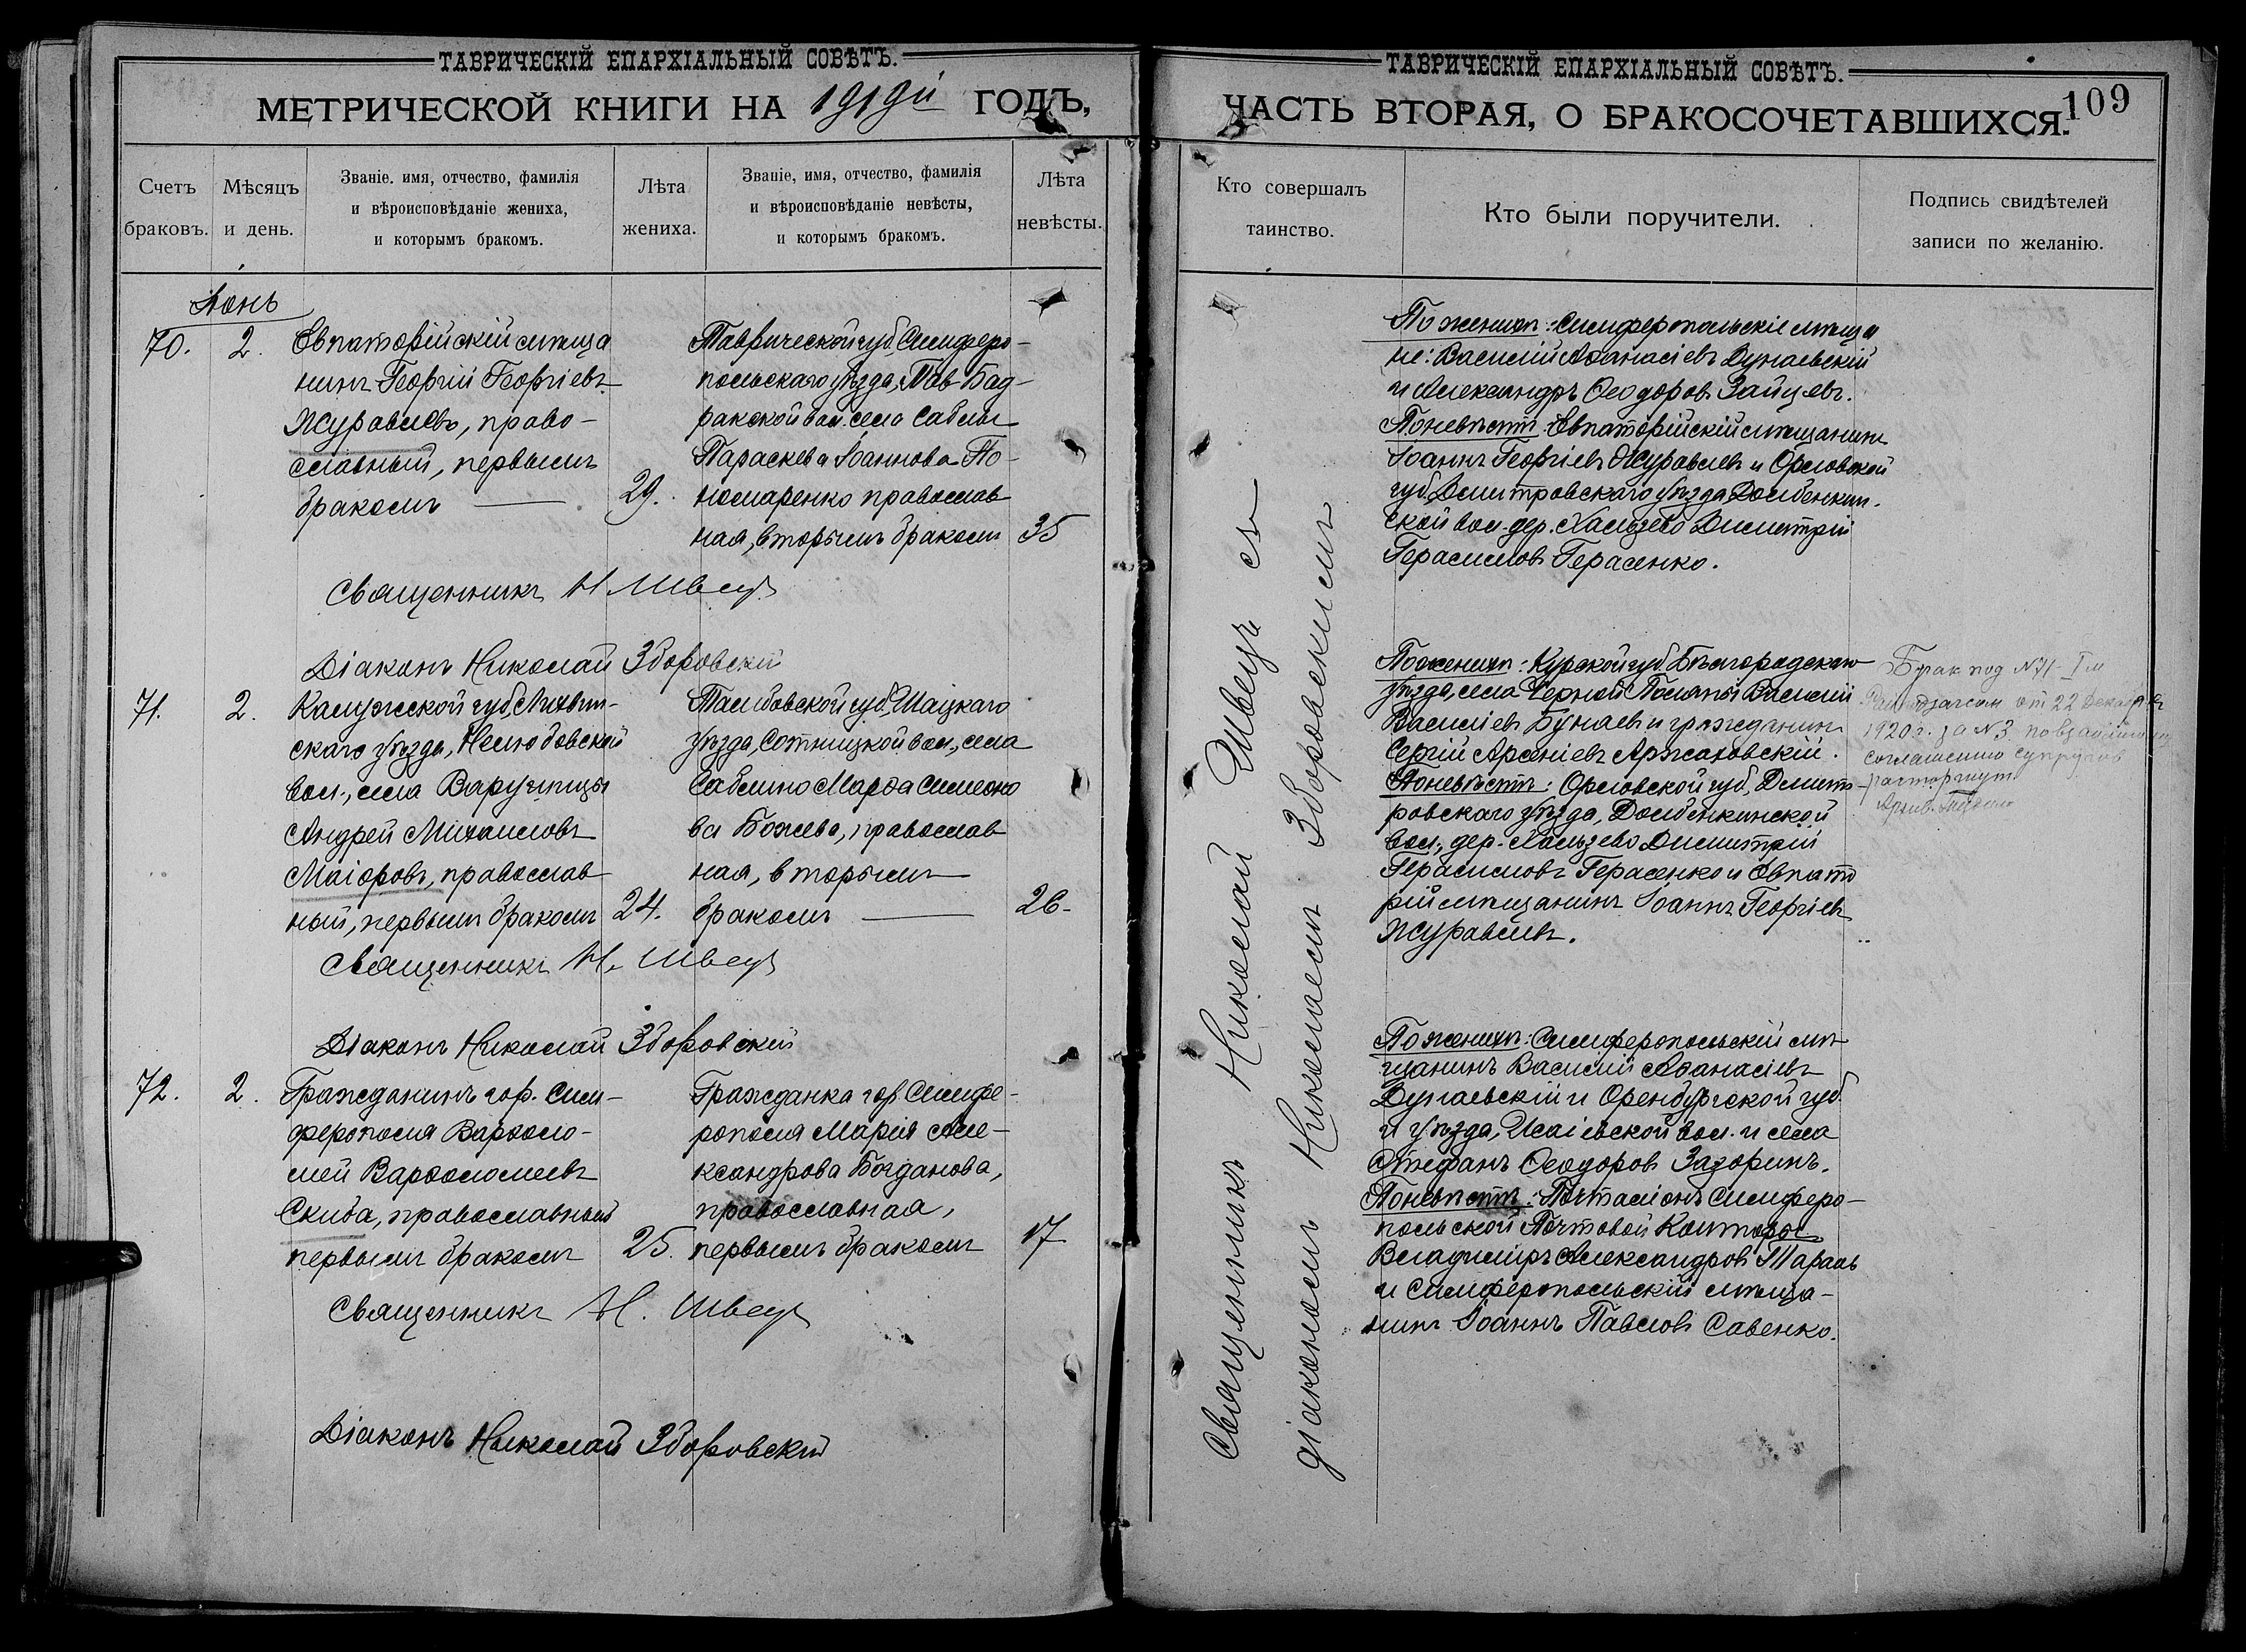 ТАВРИЧЕСКІЙ ЕПАРХІАЛЬНЫЙ СОВѢТЪ.
МЕТРИЧЕСКОЙ КНИГИ НА 1919й ГОДЪ,
Счетъ браковъ.
Мѣсяцъ и день.
Званіе. имя, отчество, фамилія
и вѣроисповѣданіе жениха,
и которымъ бракомъ.
Лѣта
жениха.
Званіе, имя, отчество, фамилія
и вѣроисповѣданіе невѣсты,
и которымъ бракомъ.
Лѣта
невѣсты.
Іюнь
70.
2.
Евпаторійскій мѣща
нинъ Георгій Георгіевъ
Журавлевъ, право-
славный, первымъ
бракомъ
29.
Таврической губ. Симферо-
польскаго уѣзда, Тав-Бад-
ракской вол. села Саблы
Параскева Іоаннова По-
номаренко православ
ная, вторымъ бракомъ
35
Священникъ Н Швецъ
Діаконъ Николай Зборовскій
71.
2.
Калужской губ. Лихвин-
скаго уѣзда,
вол., села
Андрей Михаиловъ
Маіоровъ, православ
ный, первымъ бракомъ
24.
Тамбовской губ. Шацкаго
уѣзда, Сотницкой вол., села
Саблино Марѳа Симеоно
ва Божева, православ
ная, вторымъ
бракомъ
26.
Священникъ Н. Швецъ
Діаконъ Николай Зборовскій
72.
2.
Гражданинъ гор. Сим-
ферополя Варѳоло-
мей Варѳоломеевъ
Скиба, православный
первымъ бракомъ
25.
Гражданка гор. Симфе-
рополя Марія Але-
ксандрова Богданова,
православная,
первымъ бракомъ
17
Священникъ Н. Швецъ
Діаконъ Николай Зборовскій
ТАВРИЧЕСКІЙ ЕПАРХІАЛЬНЫЙ СОВѢТЪ.
ЧАСТЬ ВТОРАЯ, О БРАКОСОЧЕТАВШИХСЯ.
109
Кто совершалъ
таинство.
Кто были поручители.
Подпись свидѣтелей
записи по желанію.
Священникъ Николай Швецъ съ
діакономъ Николаемъ Зборовскимъ
По женихѣ: Симферопольскіе мѣща
не: Василій Аѳанасіевъ Дунаевскій
и Александръ Ѳеодоровъ Зайцевъ.
По невѣстѣ: Евпаторійскій мѣщанинъ
Іоаннъ Георгіевъ Журавлевъ и Орловской
губ. Дмитровскаго уѣзда Долбенкин-
ской вол. дер. Хальзево Димитрій
Герасимовъ Герасенко.
По женихѣ: Курской губ. Бѣлгородскаго
уѣзда, села Черной Поляны Василій
Василіевъ Бунаевъ и гражданинъ
Сергій Арсеніевъ Аржаховскій.
По невѣстѣ: Орловской губ., Дмит-
ровскаго уѣзда, Долбенкинской
вол., дер. Хальзево Димитрій
Герасимовъ Герасенко и Евпато
рій мѣщанинъ Іоаннъ Георгіевъ
Журавлевъ.
Брак под N 71 I м
от 22 Декабря
1920 г. за N 3 по взаимному
соглашению супругов
расторгнут
По женихѣ: Симферопольскій мѣ-
щанинъ Василій Аѳанасіевъ
Дунаевскій и Оренбургской губ.
и уѣзда, Исаіевской вол. и села
Стефанъ Ѳеодоровъ Зазоринъ.
По невѣстѣ: Почталіонъ Симферо-
польской Почтовой Конторы
Владиміръ Александровъ
и Симферопольскій мѣща-
нинъ Іоаннъ Павловъ Савенко.